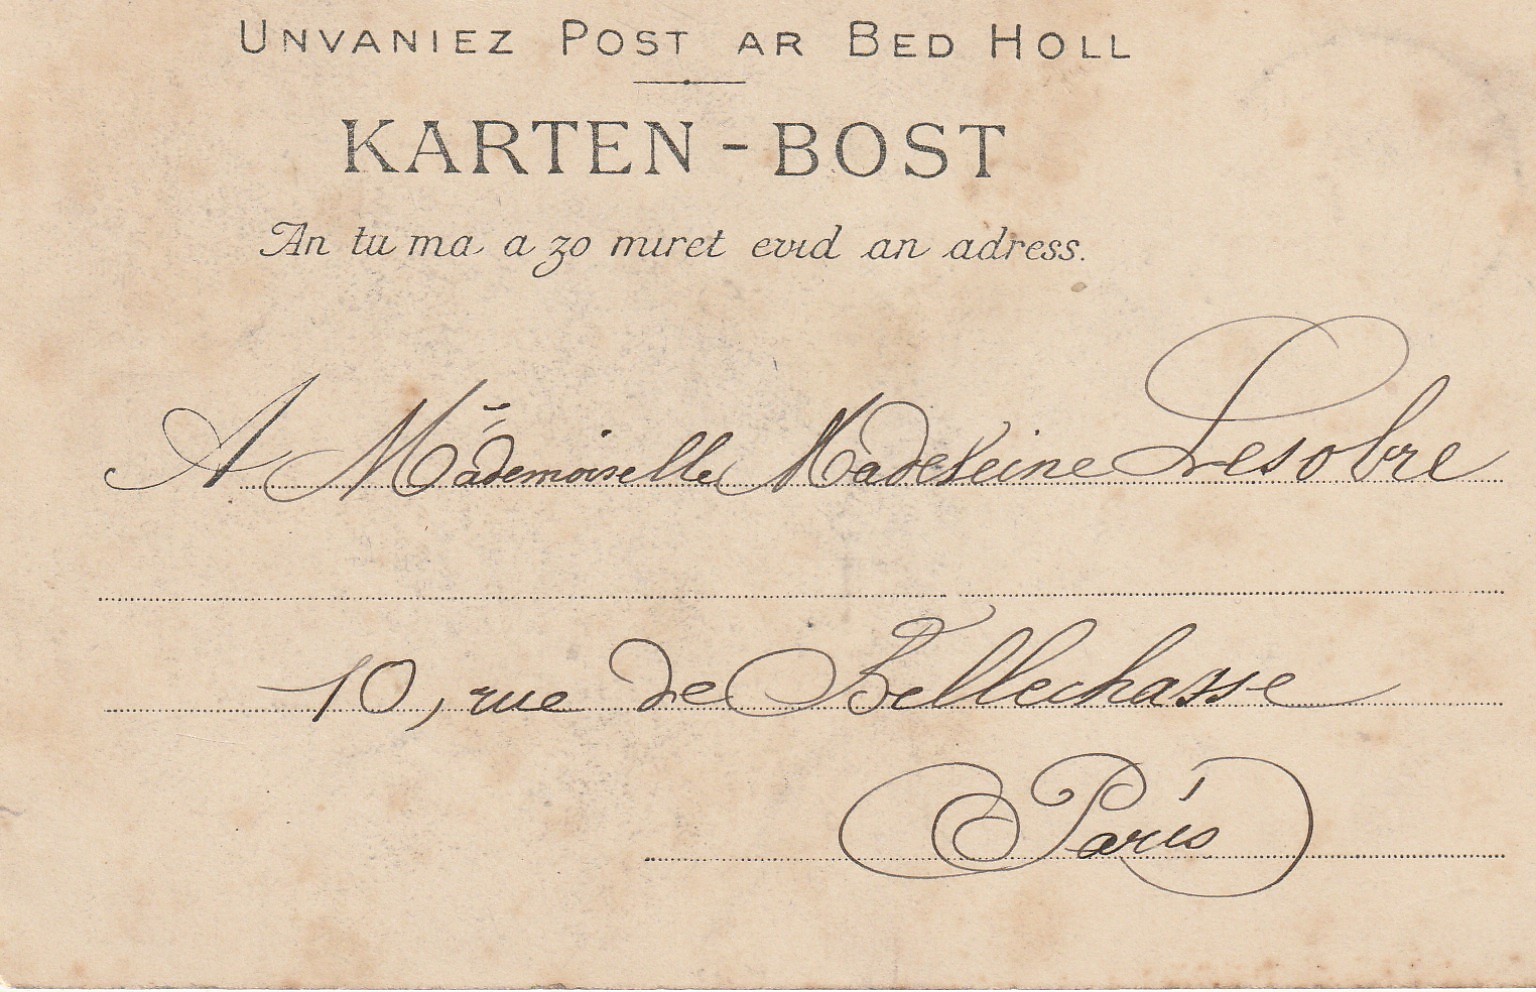 UNVANIEZ POST AR BED HOLL
KARTEN-BOST
An tu ma a zo miret evid an adress.
A Mademoiselle Madeleine Lesobre
10, rue de Bellechasse
Paris